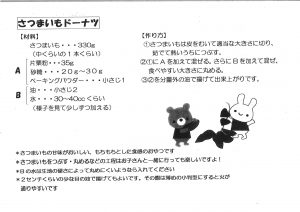 さつまいもドーナツ
【材料】
さつまいも・・・330g
(中くらいの1本くらい)
A
片栗粉・・・35g
砂糖・・・20g~30g
ベーキングパウダー・・・小さじ1
B
油・・・小さじ2
水・・・30~40ccくらい
(様子を見て少しずつ加える)
【作り方】
①さつまいもは皮をむいて適当な大きさに切り、
茹でて熱いうちにつぶす。
②①にAを加えて混ぜる。さらにBを加えて混ぜ、
食べやすい大きさに丸める。
③②を分量外の油で揚げて出来上がりです。
*さつまいもの甘味がおいしい、もちもちとした食感のおやつです
*さつまいもをつぶす・丸めるなどの工程はお子さんと一緒に行っても楽しいですよ!
*Bの水は生地の硬さによって丸めにくいようなら入れてください
*2センチくらいの少な目の油で揚げてもよいです。その際は薄めの小判型にすると火が
通りやすいです